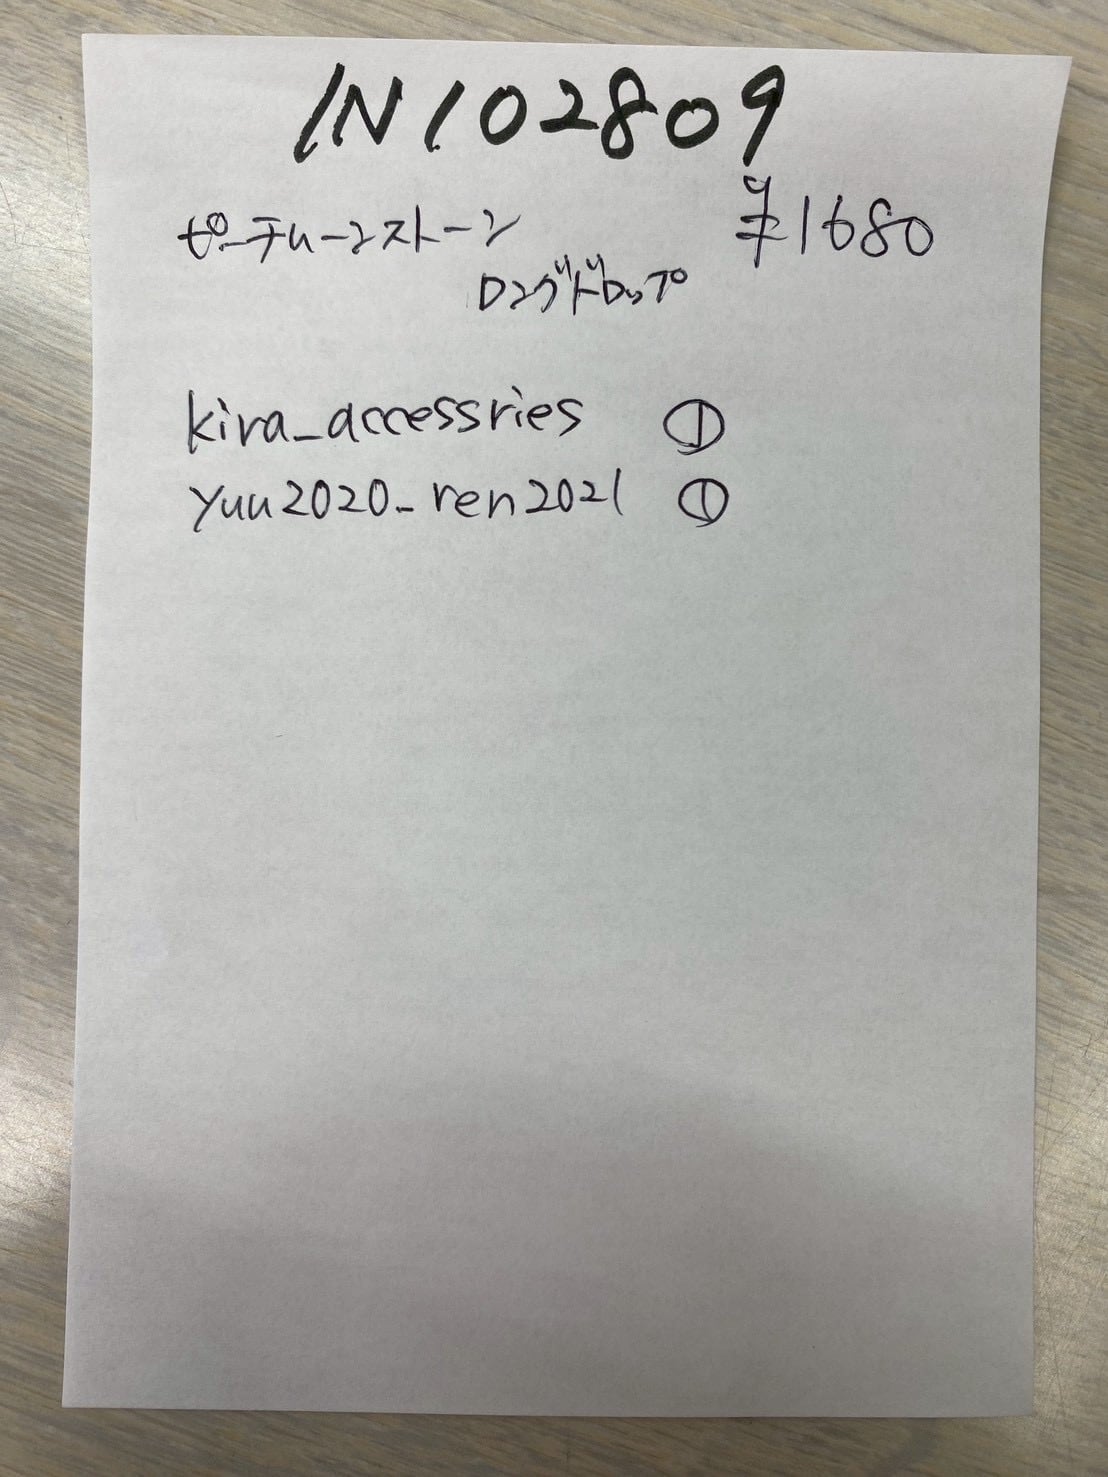 IN102809
ピーテルーンストーン ¥1680
ロングドロップ
kira_accessries ①
yuu2020_ren2021 ①